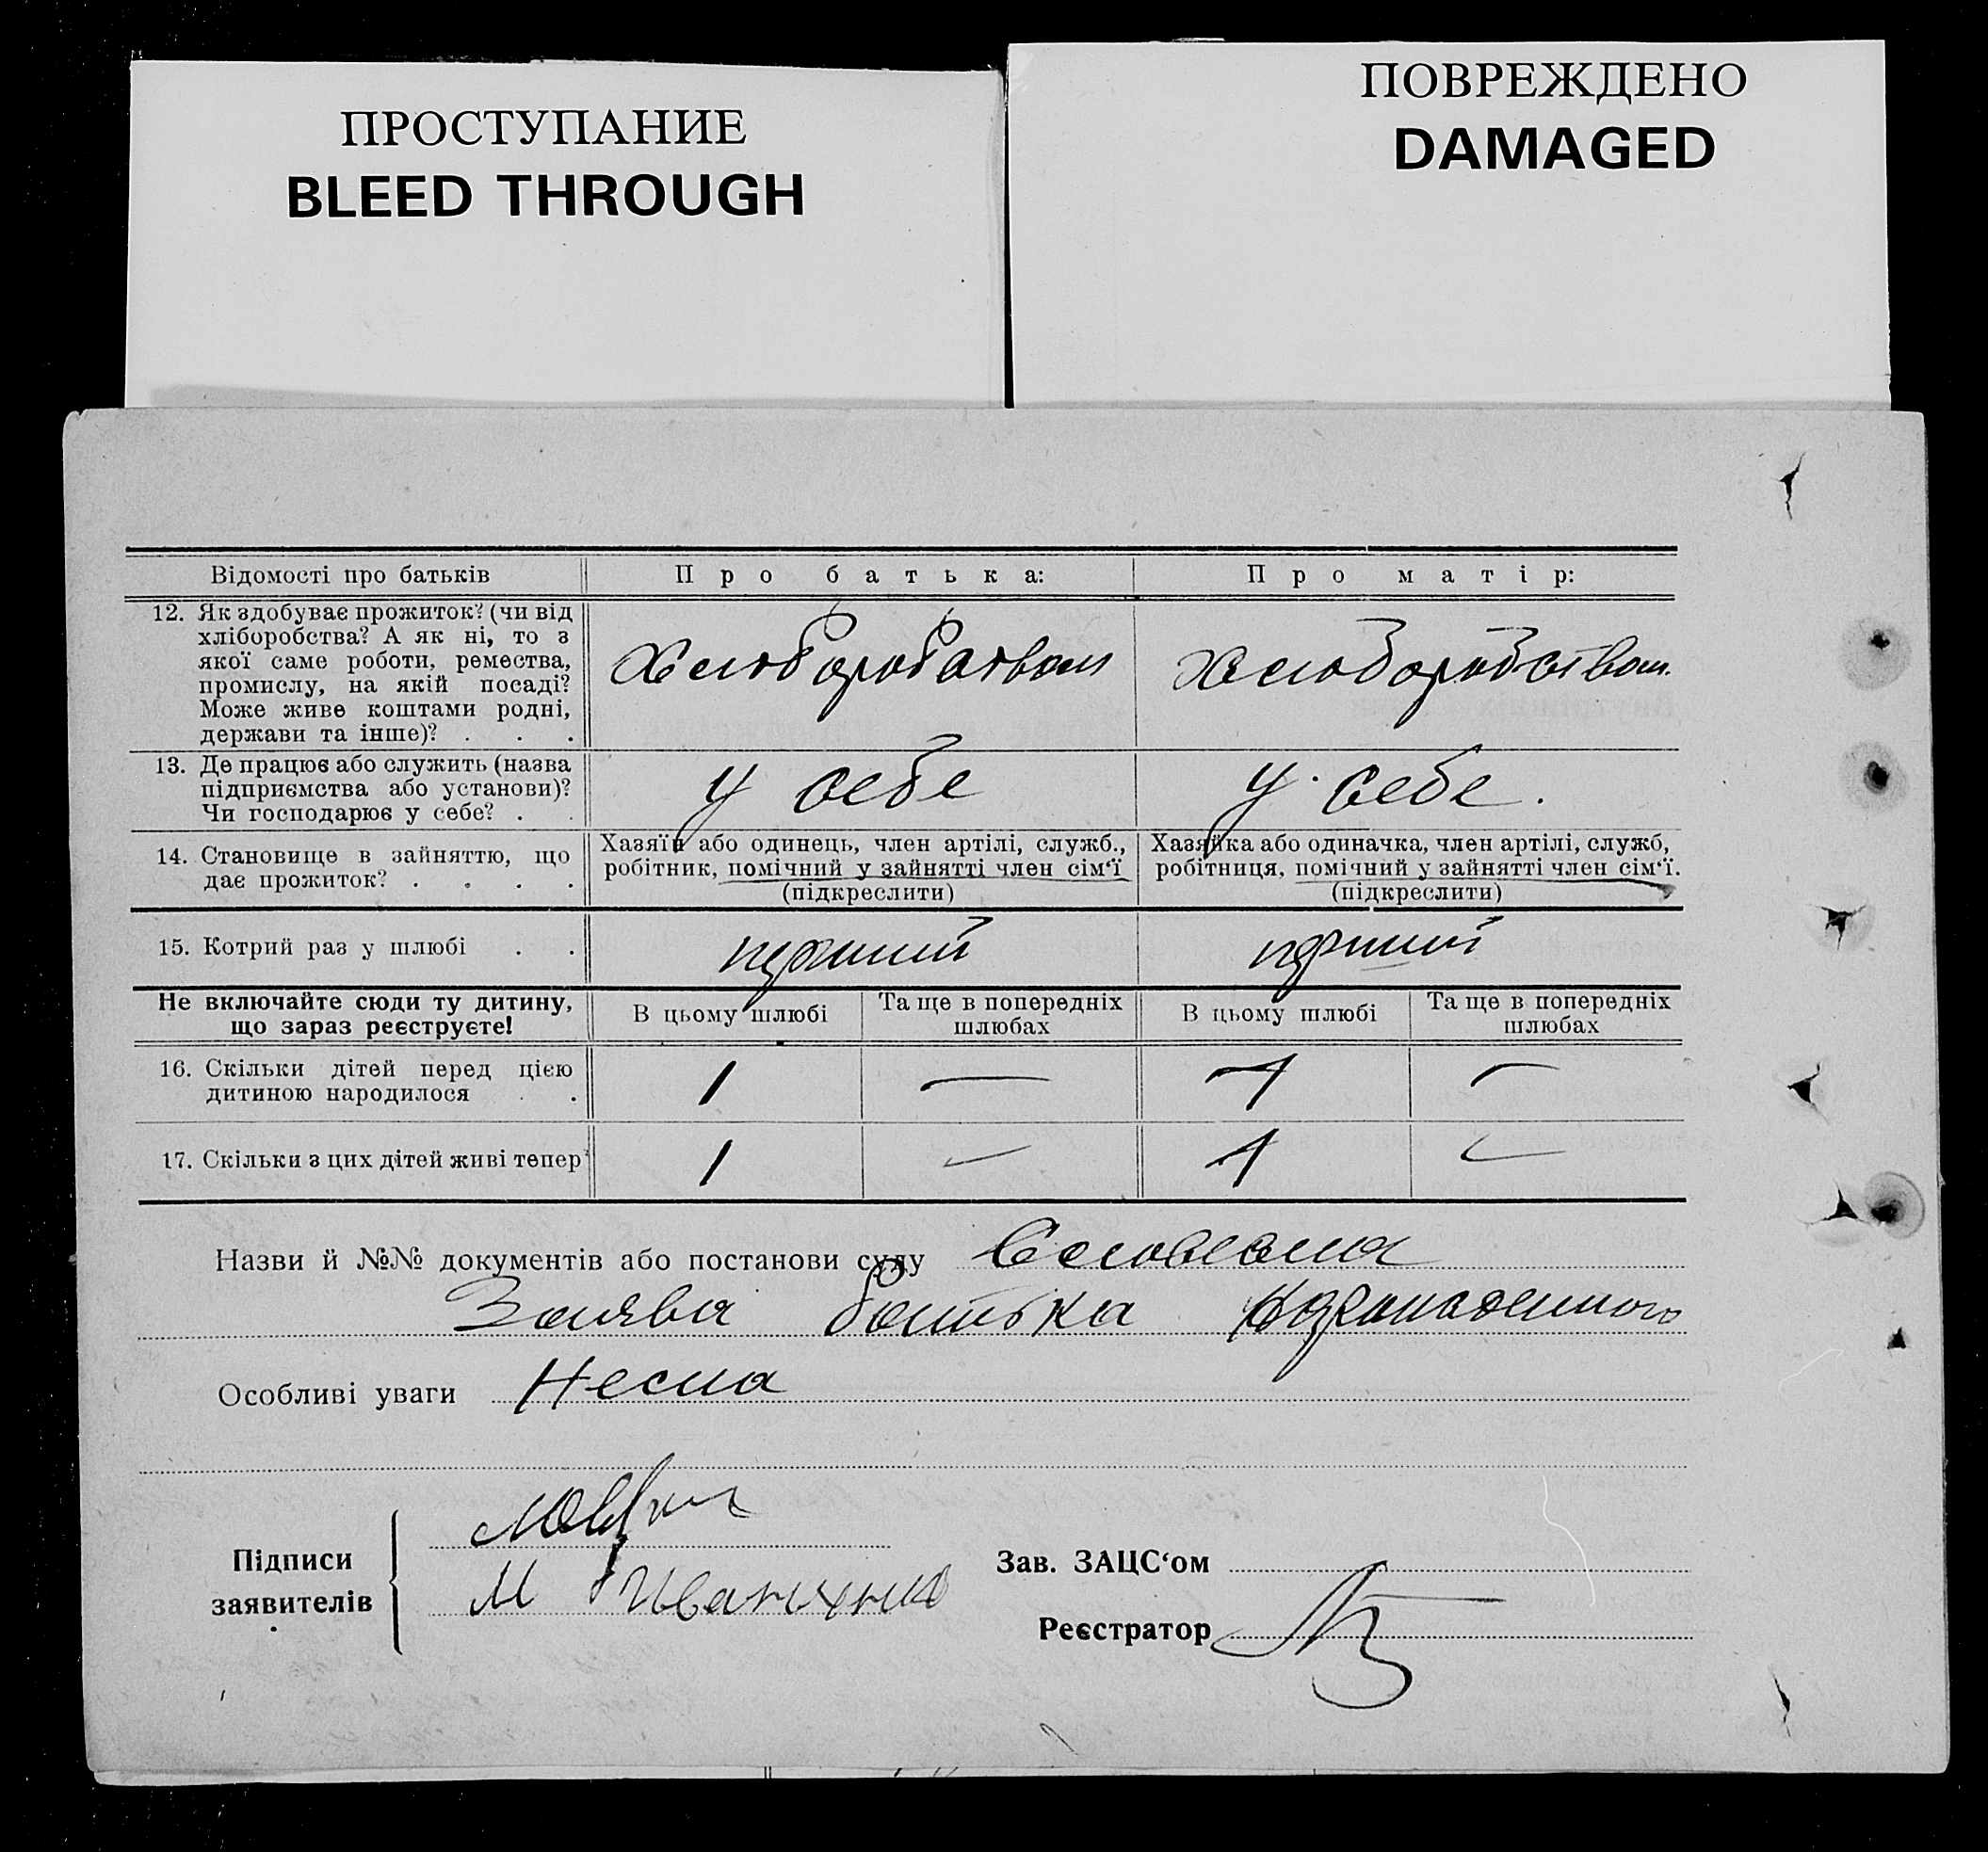 ПРОСТУПАНИЕ
BLEED THROUGH
ПОВРЕЖДЕНО
DAMAGED
Відомості про батьків Про батька: Про матір:
12. Як здобуває прожиток? (чи від
хліборобства? А як ні, то з
якої саме роботи, ремества,
промислу, на якій посаді?
Може живе коштами родні,
держави та інше)? . . .
Хліборобством Хліборобством.
13. Де працює або служить (назва
підприємства або установи)?
Чи господарює у себе? . .
у себе у себе.
14. Становище в зайняттю, що
дає прожиток? . . . .
Хазяїн або одинець, член артілі, служб.,
робітник, помічний у зайнятті член сім‘ї
(підкреслити)
Хазяйка або одиначка, член артілі, служб,
робітниця, помічний у зайнятті член сім‘ї.
(підкреслити)
15. Котрий раз у шлюбі . .
перший перший
Не включайте сюди ту дитину,
що зараз реєструєте!
В цьому шлюбі Та ще в попередніх
шлюбах
В цьому шлюбі Та ще в попередніх
шлюбах
16. Скільки дітей перед цією
дитиною народилося . .
1 — 1 —
17. Скільки з цих дітей живі тепер
1 — 1 —
Назви й №№ документів або постанови суду Словесна
Заява батька
Особливі уваги Несма
Підписи
заявителів
М Иванченко
Зав. ЗАЦС‘ом
Реєстратор